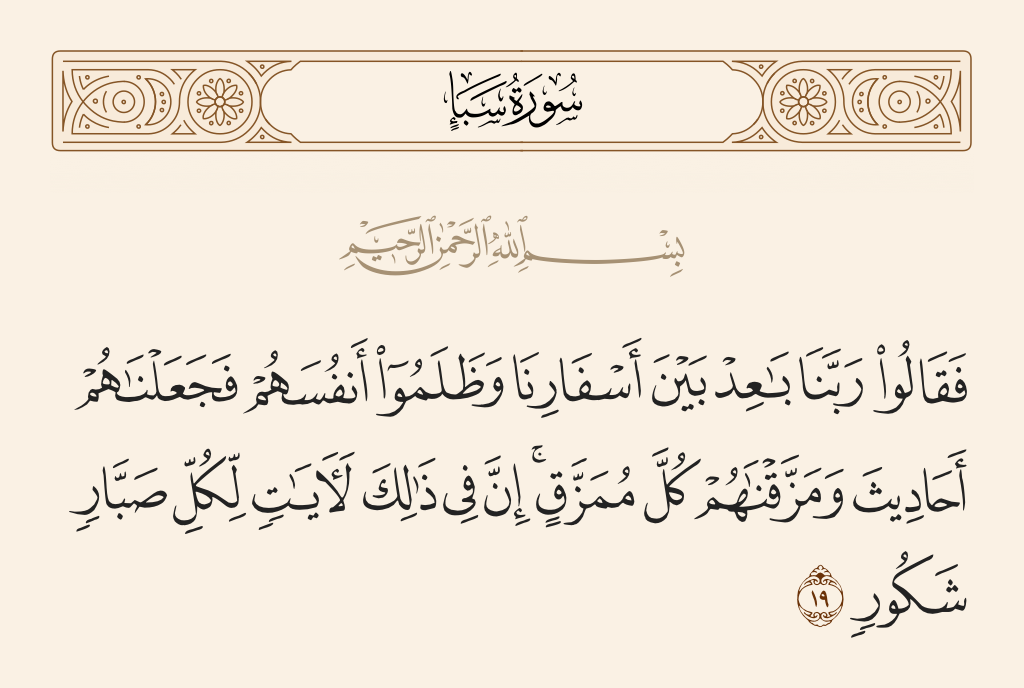 سُورَةُ سَبَإٍ
بِسْمِ ٱللَّهِ ٱلرَّحْمَٰنِ ٱلرَّحِيمِ
فَقَالُوا۟ رَبَّنَا بَـٰعِدْ بَيْنَ أَسْفَارِنَا وَظَلَمُوٓا۟ أَنفُسَهُمْ فَجَعَلْنَـٰهُمْ
أَحَادِيثَ وَمَزَّقْنَـٰهُمْ كُلَّ مُمَزَّقٍ ۚ إِنَّ فِى ذَٰلِكَ لَـَٔايَـٰتٍ لِّكُلِّ صَبَّارٍ
شَكُورٍ ١٩